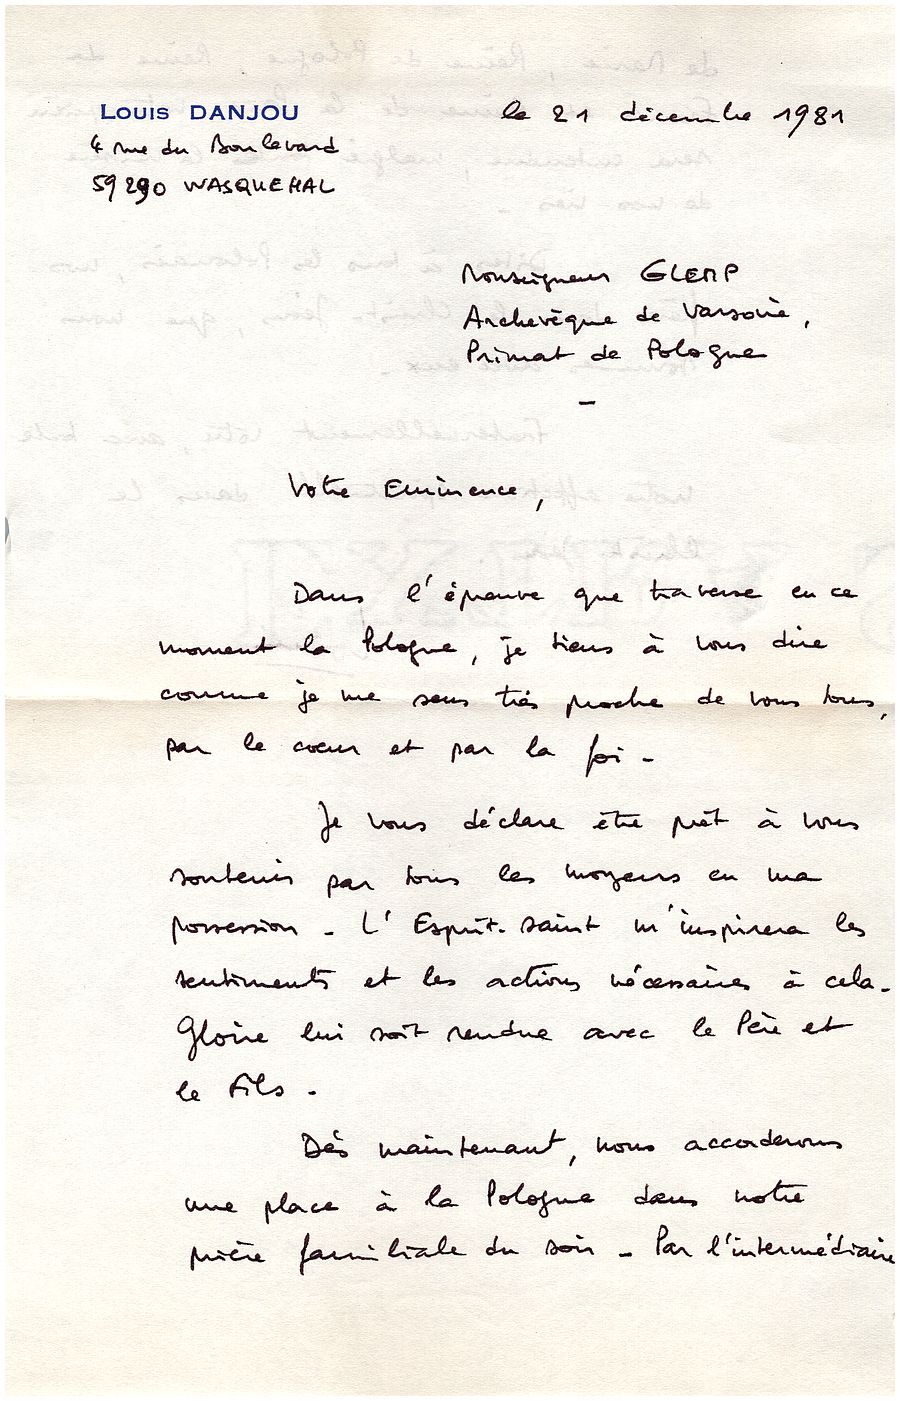 Louis DANJOU
le 21 décembre 1981
4 rue du Boulevard
59290 WASQUEHAL
Monseigneur GLEMP
Archevêque de Varsovie,
Primat de Pologne
–
Votre Eminence,
Dans l'épreuve que traverse en ce
moment la Pologne, je tiens à vous dire
comme je me sens très proche de vous tous,
par le coeur et par la foi -
Je vous déclare être prêt à vous
soutenir par tous les moyens en ma
possession - L'Esprit-Saint m'inspirera les
sentiments et les actions nécessaires à cela-
Gloire lui soit rendue avec le Père et
le Fils -
Dès maintenant, nous accorderons
une place à la Pologne dans notre
prière familiale du soir - Par l'intermédiaire